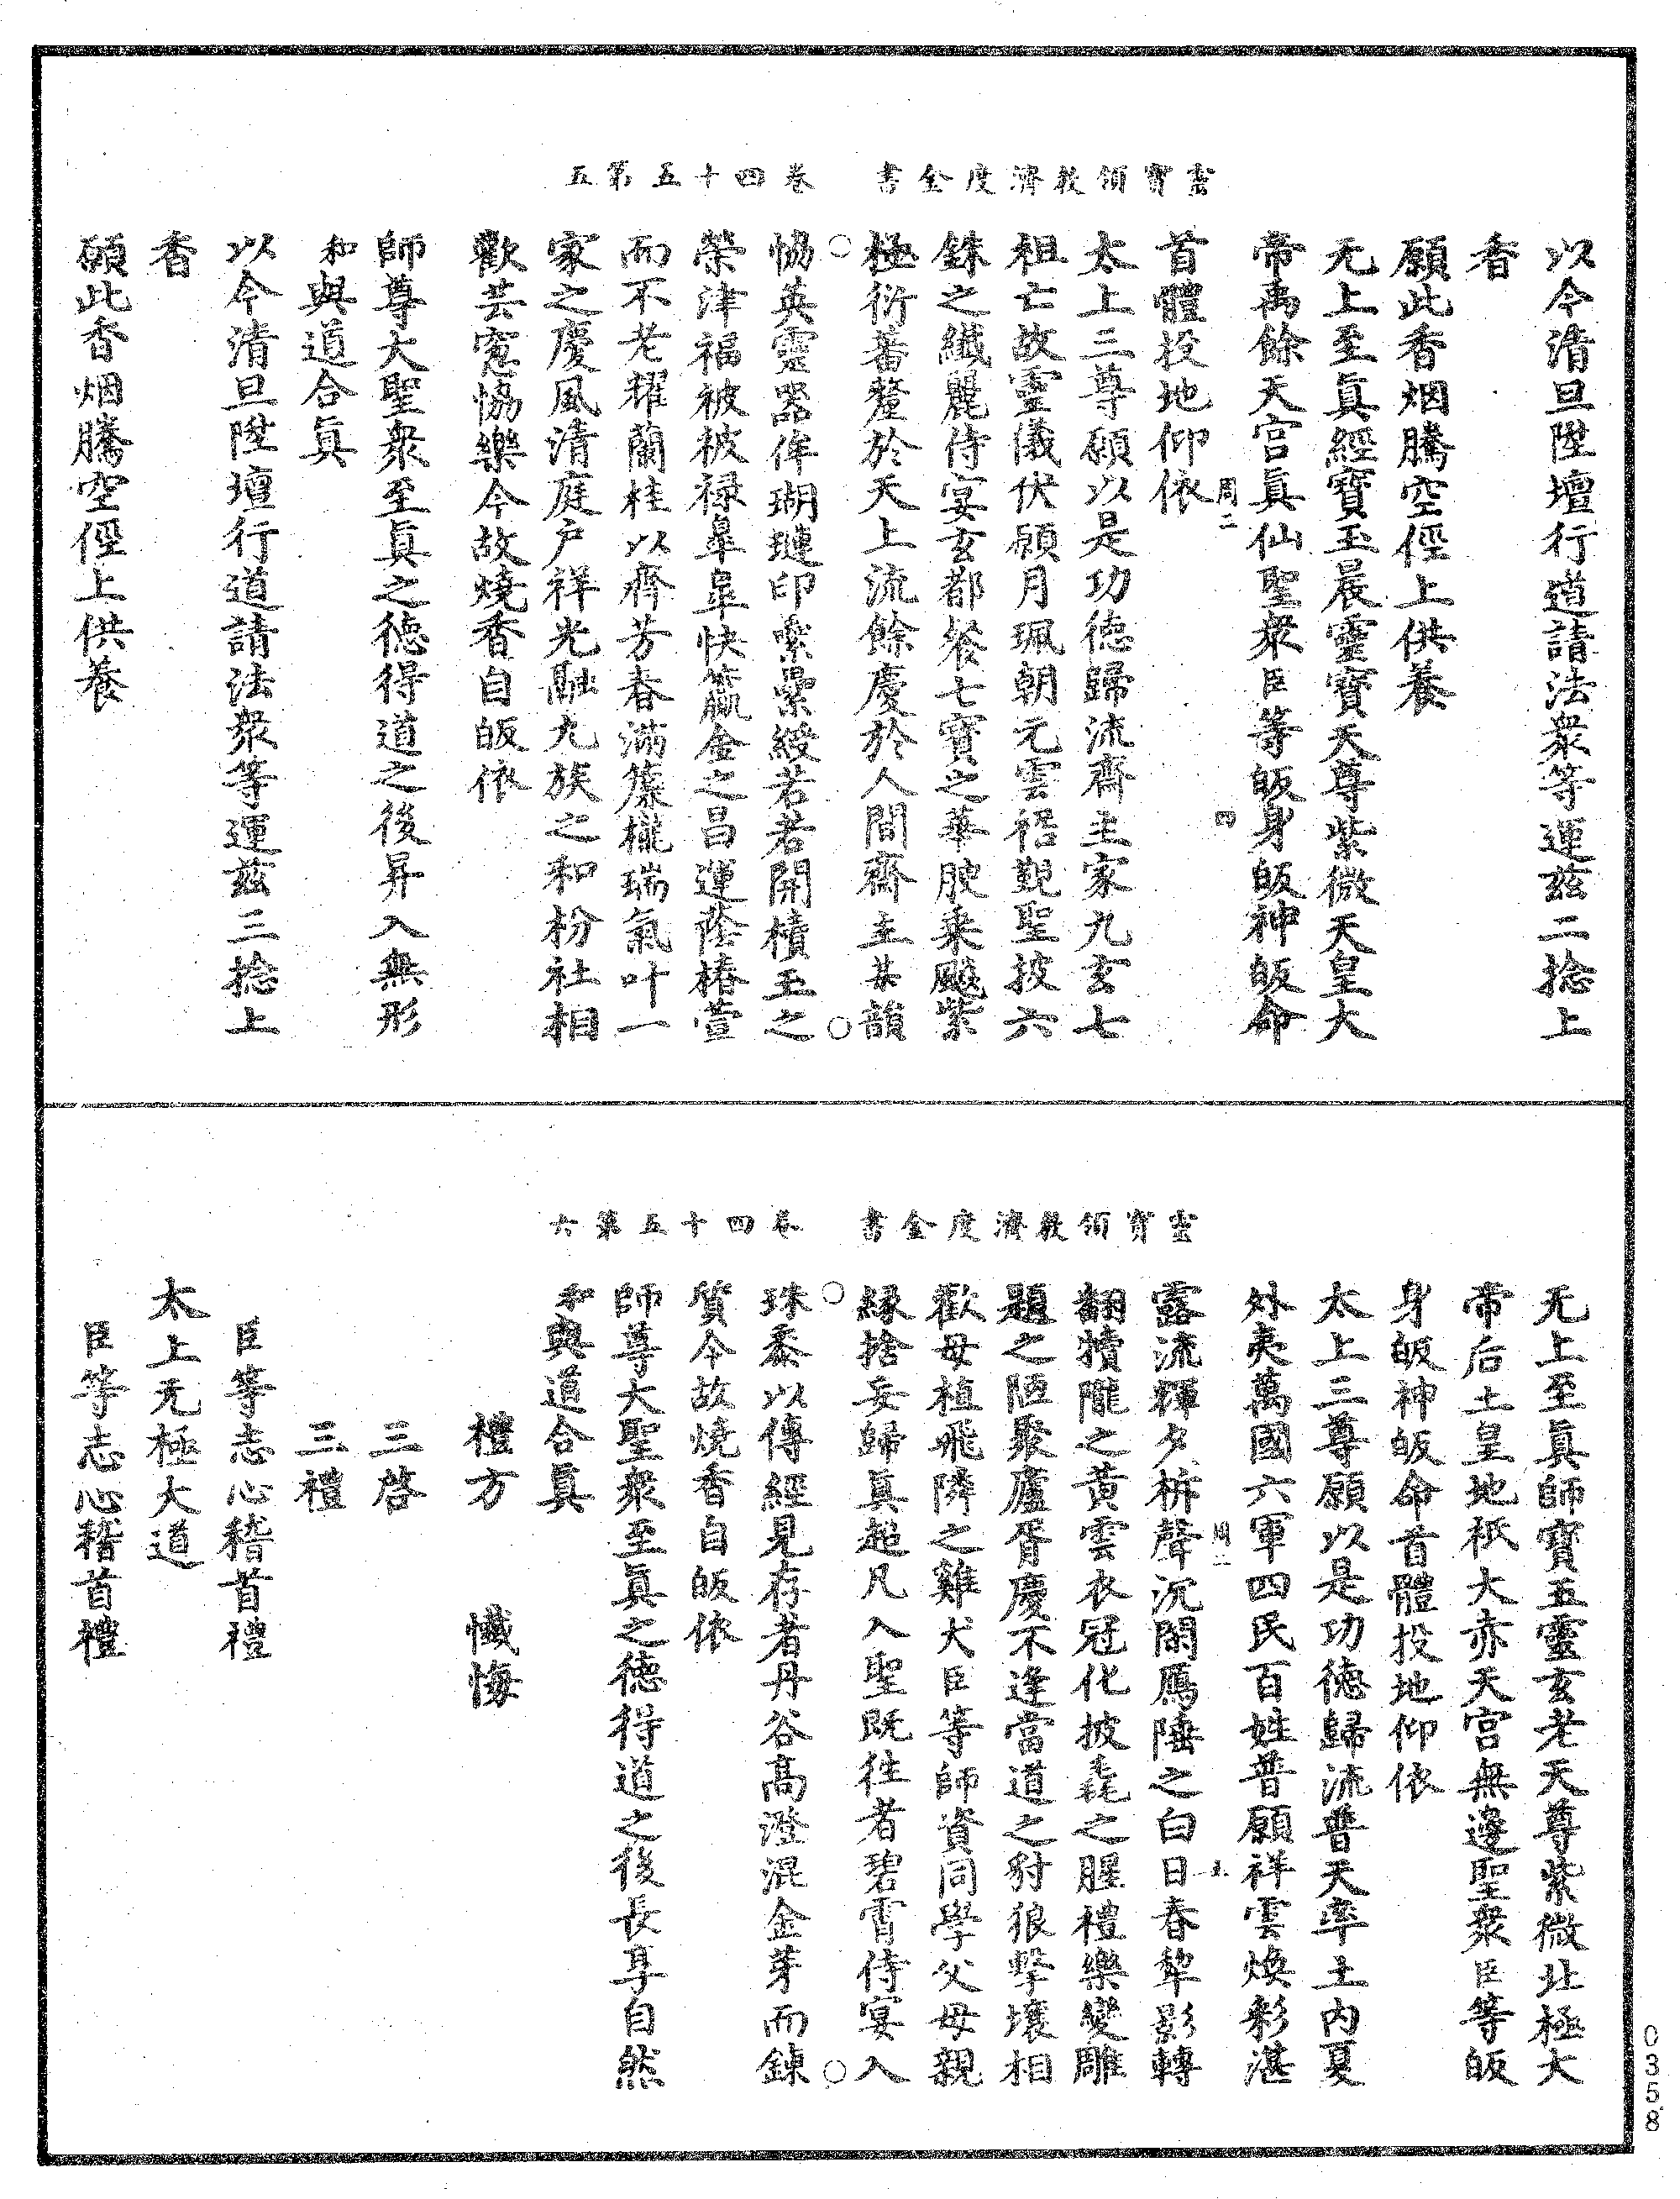 靈寶領教濟度金書　卷四十五第五
以今清旦陞壇行道請法衆等運兹二捻上
香
願此香烟騰空徑上供養
无上至眞經寶玉晨靈寶天尊紫微天皇大
帝禹餘天宫眞仙聖衆臣等皈身皈神皈命
周二　四
首體投地仰依
太上三尊願以是功徳歸流齋主家九玄七
祖亡故靈儀伏願月珮朝元雲裾覲聖披六
銖之纖麗侍宴玄都飱七寶之華腴乘飈紫
極衍蕃釐於天上流餘慶於人間齋主某韻
恊英靈器侔瑚璉印纍纍綬若若開櫝玉之
榮津福被被禄皐皐快籯金之昌運蔭椿萱
而不老耀蘭桂以齊芳春滿簾櫳瑞氣叶一
家之慶風清庭户祥光融九族之和枌社相
歡芸寃恊樂今故燒香自皈依
師尊大聖衆至眞之徳得道之後昇入無形
和與道合眞
以今清旦陞壇行道請法衆等運兹三捻上
香
願此香烟騰空徑上供養
靈寶領教濟度金書　卷四十五第六
无上至眞師寶五靈玄老天尊紫微北極大
帝后土皇地祇大赤天宫無邊聖衆臣等皈
身皈神皈命首體投地仰依
太上三尊願以是功徳歸流普天率土内夏
外夷萬國六軍四民百姓普願祥雲煥彩湛
露流輝夕柝聲沉閑鴈陲之白日春犂影轉
周二　五
翻犢隴之黄雲衣冠化披毳之腥禮樂變雕
題之陋聚廬胥慶不逢當道之豺狼擊壤相
歡毋植飛隣之雞犬臣等師資同學父母親
縁捨妄歸真超凡入聖既往者碧霄侍宴入
珠黍以傳經見存者丹谷高澄混金芽而錬
質今故燒香自皈依
師尊大聖衆至眞之徳得道之後長享自然
和與道合眞
禮方　懺悔
三啓
三禮
臣等志心稽首禮
太上无極大道
臣等志心稽首禮
0358